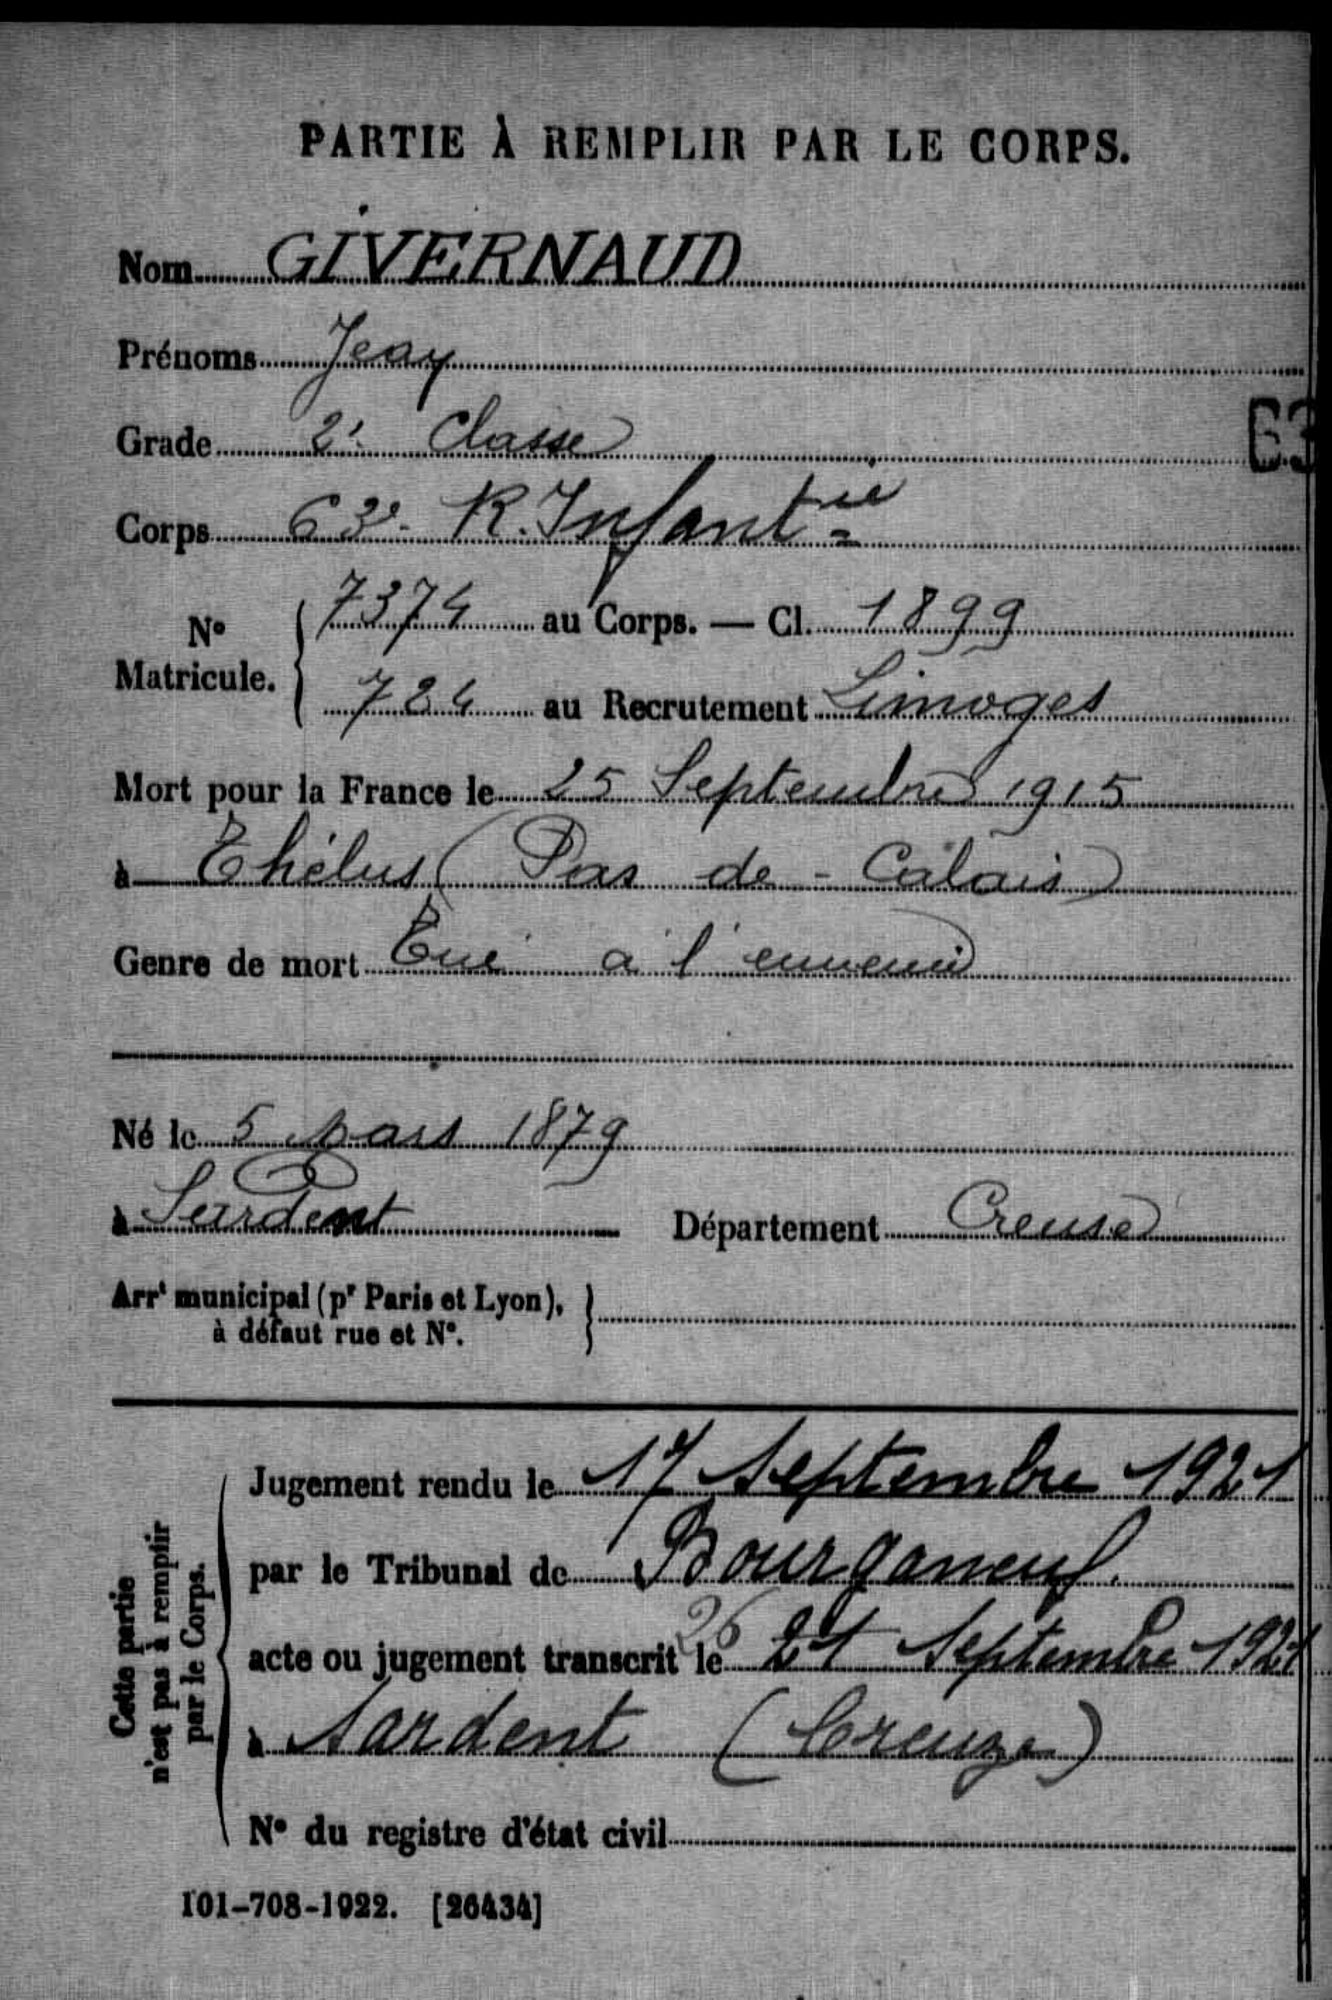 PARTIE À REMPLIR PAR LE CORPS.
Nom GIVERNAUD
Prénoms Jean
Grade 2e Classe
63
Corps 63e R. Infantie
N° Matricule. 7374 au Corps. — Cl. 1899
724 au Recrutement Limoges
Mort pour la France le 25 Septembre 1915
à Thélus (Pas de - Calais)
Genre de mort Tué à l'ennemi
Né le 5 Mars 1879
à Sardent Département Creuse
Arrt municipal (pr Paris et Lyon),
à défaut rue et N°.
Cette partie
n'est pas à remplir
par le Corps.
Jugement rendu le 17 Septembre 1921
par le Tribunal de Bourganeuf.
26
acte ou jugement transcrit le 21 Septembre 1921
à Sardent (Creuze)
N° du registre d'état civil
101-708-1922. [26434]